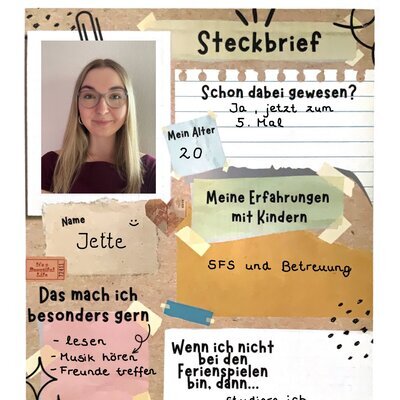 Steckbrief
Schon dabei gewesen?
Ja, jetzt zum
5. Mal
Mein Alter
20
Meine Erfahrungen
mit Kindern
SFS und Betreuung
Name
Jette
Das mach ich
besonders gern
- lesen
- Musik hören
- Freunde treffen
Wenn ich nicht
bei den
Ferienspielen
bin, dann...
studiere ich